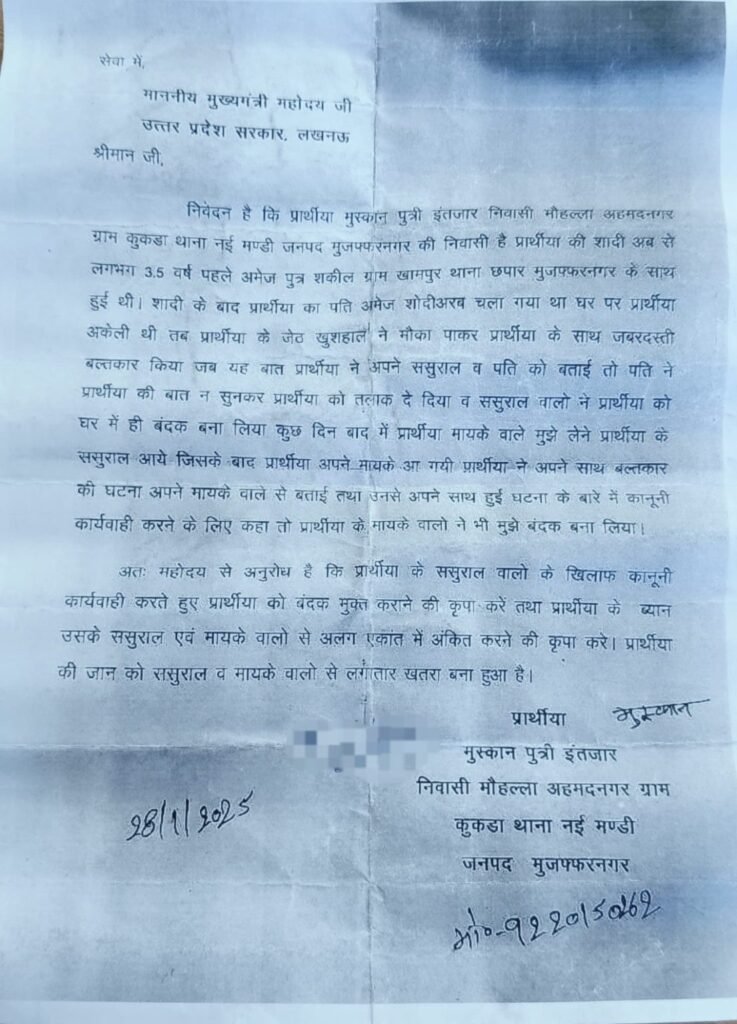 सेवा में,
माननीय मुख्यमंत्री महोदय जी
उत्तर प्रदेश सरकार, लखनऊ
श्रीमान जी,
निवेदन है कि प्रार्थीया मुस्कान पुत्री इंतजार निवासी मौहल्ला अहमदनगर
ग्राम कुकडा थाना नई मण्डी जनपद मुजफ्फरनगर की निवासी है प्रार्थीया की शादी अब से
लगभग 3.5 वर्ष पहले अमेज पुत्र शकील ग्राम खामपुर थाना छपार मुजफ्फरनगर के साथ
हुई थी। शादी के बाद प्रार्थीया का पति अमेज शोदीअरब चला गया था घर पर प्रार्थीया
अकेली थी तब प्रार्थीया के जेठ खुशहाल ने मौका पाकर प्रार्थीया के साथ जबरदस्ती
बल्तकार किया जब यह बात प्रार्थीया ने अपने ससुराल व पति को बताई तो पति ने
प्रार्थीया की बात न सुनकर प्रार्थीया को तलाक दे दिया व ससुराल वालो ने प्रार्थीया को
घर में ही बंदक बना लिया कुछ दिन बाद में प्रार्थीया मायके वाले मुझे लेने प्रार्थीया के
ससुराल आये जिसके बाद प्रार्थीया अपने मायके आ गयी प्रार्थीया ने अपने साथ बल्तकार
की घटना अपने मायके वाले से बताई तथा उनसे अपने साथ हुई घटना के बारे में कानूनी
कार्यवाही करने के लिए कहा तो प्रार्थीया के मायके वालो ने भी मुझे बंदक बना लिया।
अतः महोदय से अनुरोध है कि प्रार्थीया के ससुराल वालो के खिलाफ कानूनी
कार्यवाही करते हुए प्रार्थीया को बंदक मुक्त कराने की कृपा करें तथा प्रार्थीया के ब्यान
उसके ससुराल एवं मायके वालो से अलग एकांत में अंकित करने की कृपा करे। प्रार्थीया
की जान को ससुराल व मायके वालो से लगातार खतरा बना हुआ है।
प्रार्थीया मुस्कान
मुस्कान पुत्री इंतजार
निवासी मौहल्ला अहमदनगर ग्राम
28/1/2025
कुकडा थाना नई मण्डी
जनपद मुजफ्फरनगर
मो०-9220150262